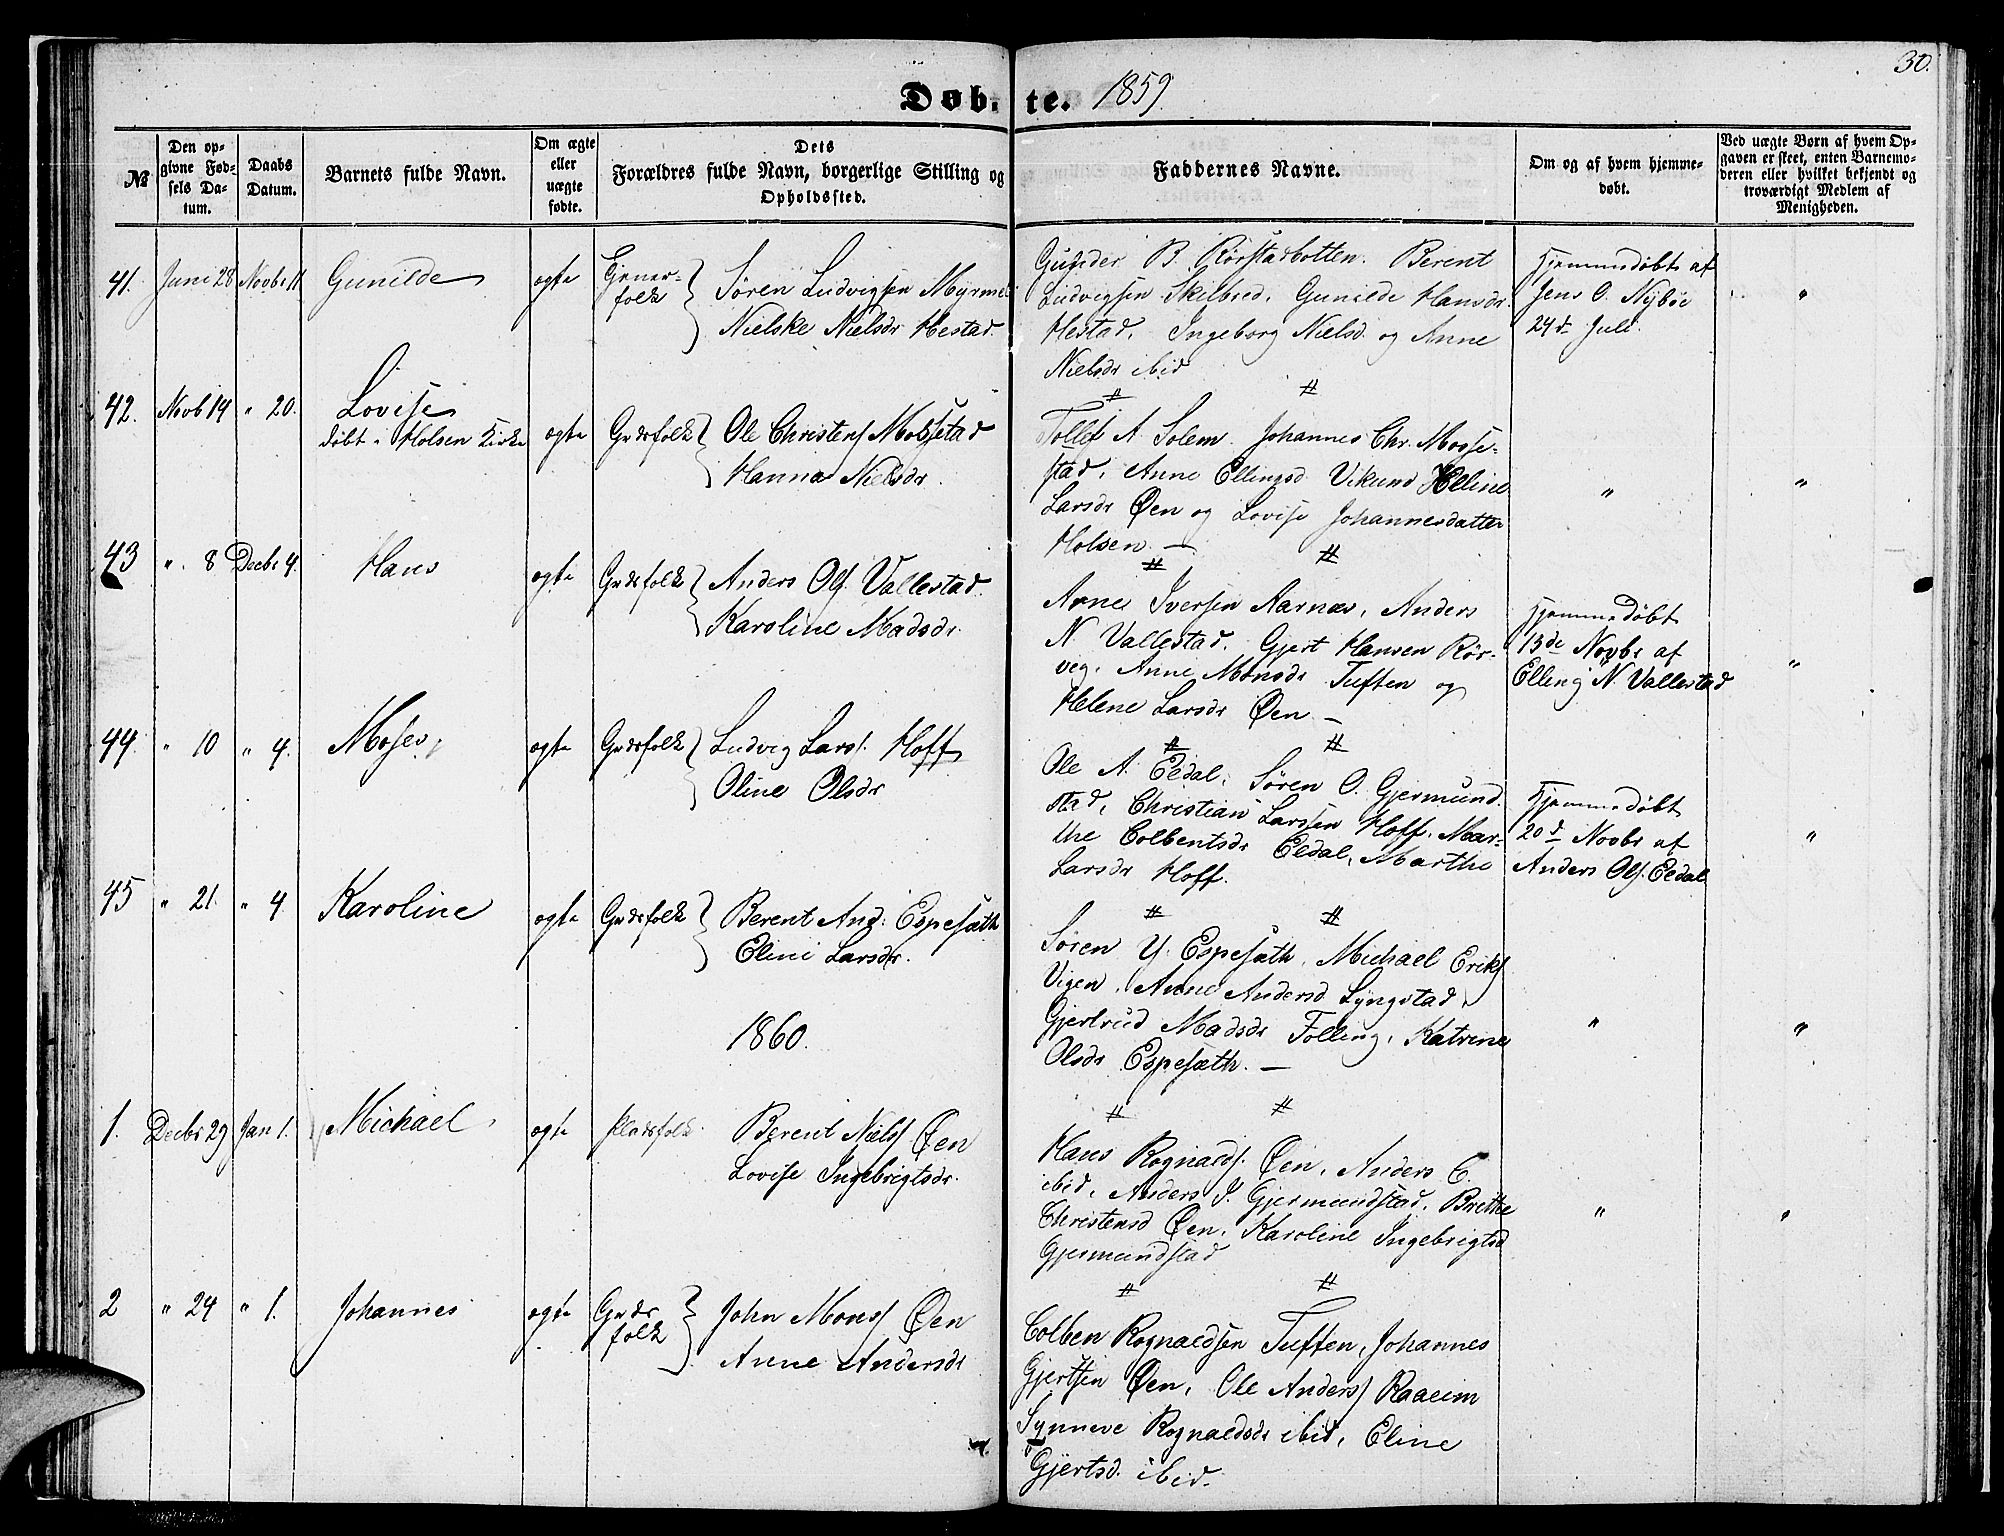 30.
Døbte. 1859
№
Den opgivne Fødsels Datum.
Daabs Datum.
Barnets fulde Navn.
Om ægte eller uægte fødte.
Dets Forældres fulde Navn, borgerlige Stilling og Opholdssted.
Faddernes Navne.
Om og af hvem hjemmedøbt.
Ved uægte Børn af hvem Opgaven er skeet, enten Barnemoderen eller hvilket bekjendt og troværdigt Medlem af Menigheden.
41. Juni 28 Novbr 11 Gunilde ægte Gjenerfolk
Søren Ludvigsen Myrme
Nielske Nielsdr Hestad
Gunder B. Rørstadbotten. Berent
Ludvigsen Skilbred, Gunilde Hansdr
Hestad, Ingeborg Nielsd. og Anne
Nielsdr ibid
Hjemmedøbt af
Jens O. Nybøe
24d Juli.
"
42. Novb 14 " 20. Lovise
døbt i Holsen Kirke
ægte Grdsfolk
Ole Christens. Mossestad
Hanna Nielsdr.
Tollef A. Solem. Johannes Chr. Mosse-
stad, Anne Ellingsd. Vikund Helene
Larsdr Øen og Lovise Johannesdatter
Holsen —
" "
43 " 8 Decbr 4. Hans ægte Grdsfolk
Anders Ols. Vallestad.
Karoline Madsdr.
Arne Iversen Aarnæs, Anders
N. Vallestad. Gjert Hansen Rør-
veg. Anne Monsdr Tuften og
Helene Larsdr Øen —
Hjemmedøbt
13de Novbr af
Elling N. Vallestad
"
44. " 10 " 4. Moses ægte Grdsfolk
Ludvig Lars. Hoff
Oline Olsdr
Ole A. Eldal, Søren O. Gjermund
stad, Christian Larssen Hoff. Mar-
the Colbentsdr Eldal, Marthe
Larsdr Hoff.
Hjemmedøbt
20d Novbr af
Anders Ols. Eldal
"
45 " 21. " 4. Karoline ægte Grdsfolk
Berent And. Espesæth
Eline Larsdr.
Søren Y. Espesæth, Michael Eriks.
Vigen, Anne Andersd Lyngstad,
Gjertrud Madsdr Folling, Katrine
Olsdr Espesæth. —
" "
1860.
1. Decbr 29 Jan 1. Michael ægte Pladsfolk
Berent Niels. Øen
Lovise Ingebrigtsdr.
Hans Rognalds. Øen, Anders C.
ibid, Anders J. Gjermundstad, Brethe
Christensd Øen, Karoline Ingebrigtsd
Gjermundstad
" "
2 " 24 " 1. Johannes ægte Grdsfolk
John Mons. Øen
Anne Andersdr
Colben Rognaldsen Tuften, Johannes
Gjertsen Øen, Ole Anders. Raaeim
Synneve Rognaldsdr ibid, Eline
Gjertsd. ibid.